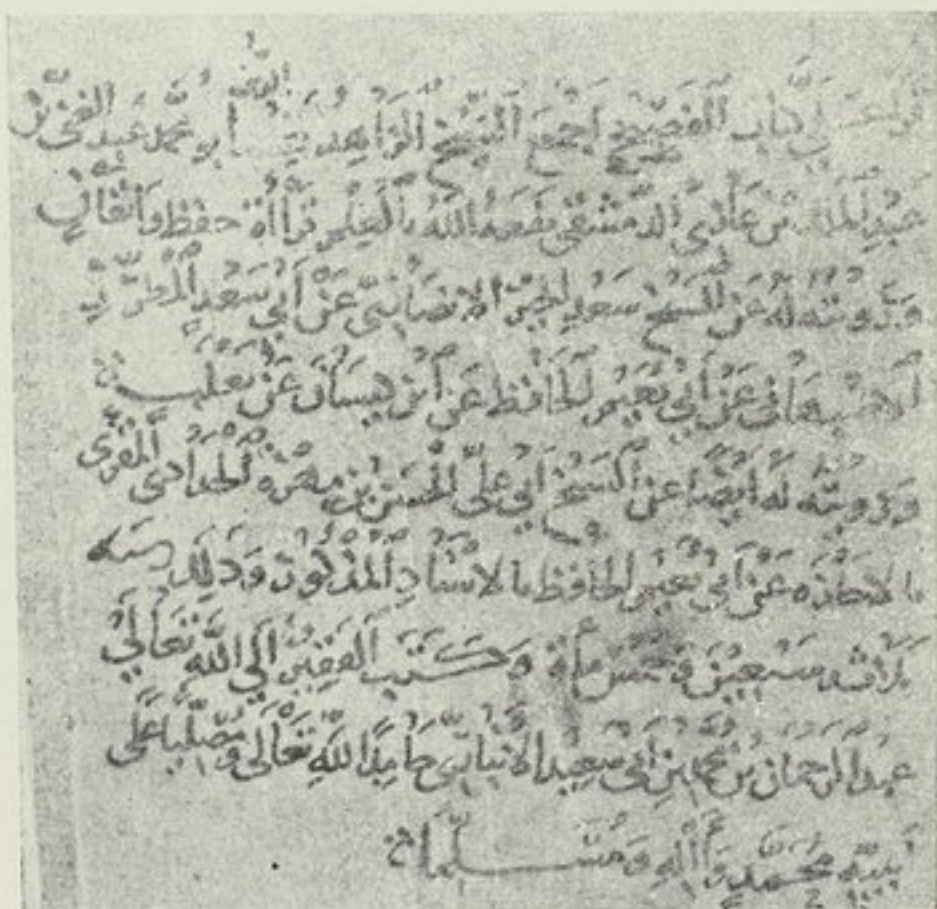 قرأ علي كتاب الفصيح أجمع الشيخ الزاهد تقي الدين أبو محمد عبد الغني بن
عبد الملك بن الدمشقي نفعه الله بالعلم قراءة حفظ وإتقان
ورويته له عن الشيخ سعد الخير الأنصاري عن أبي سعد المطرز
الأصبهاني عن أبي نعيم الحافظ عن ابن كيسان عن ثعلب
ورويته له أيضا عن الشيخ أبي علي الحسن بن الحداد المقرئ
بالإجازة عن أبي نعيم الحافظ بالإسناد المذكور وذلك سنة
سبعين وخمس مائة وكتب الفقير إلى الله تعالى
عبد الرحمان بن محمد بن أبي سعيد الأنباري حامدا لله تعالى ومصليا على
نبيه محمد وآله ومسلما